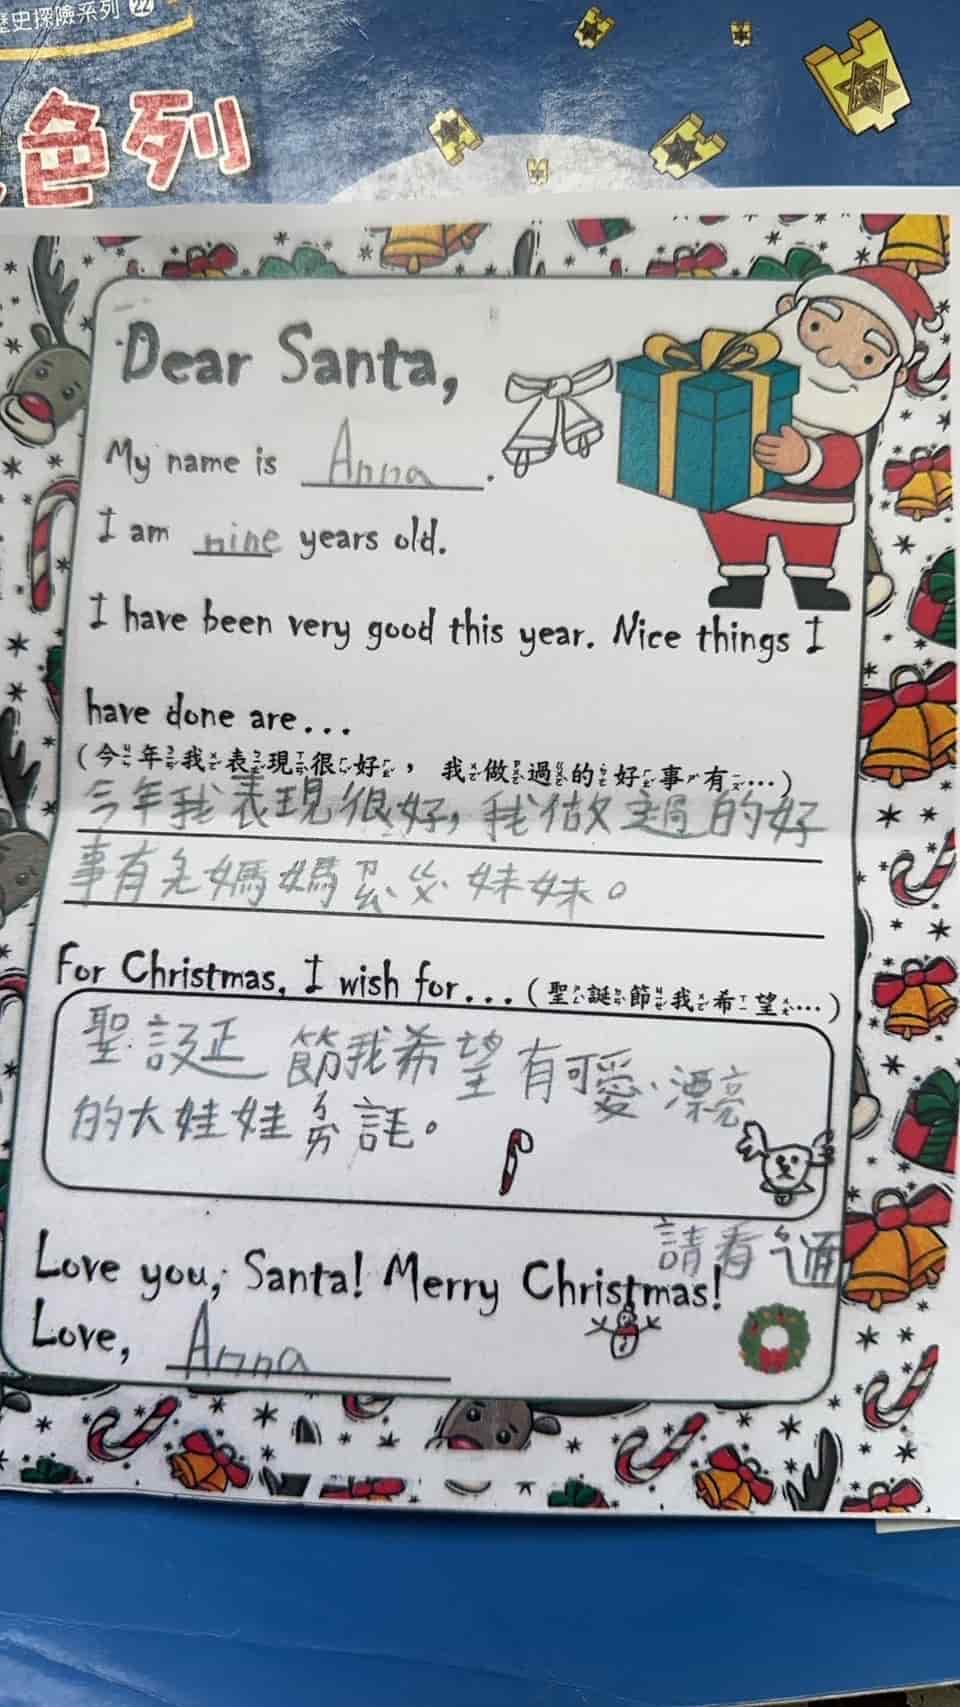 歷史探險系列 22
色列
Dear Santa,
My name is Anna.
I am nine years old.
I have been very good this year. Nice things I
have done are...
(今年我表現很好，我做過的好事有...)
今年我表現很好，我做過的好
事有 媽媽ㄗㄠ 妹妹。
For Christmas, I wish for... (聖誕節我希望...)
聖誕節我希望有可愛、漂亮
的大娃娃ㄍㄞ 。
請看
Love you, Santa! Merry Christmas!
Love, Anna